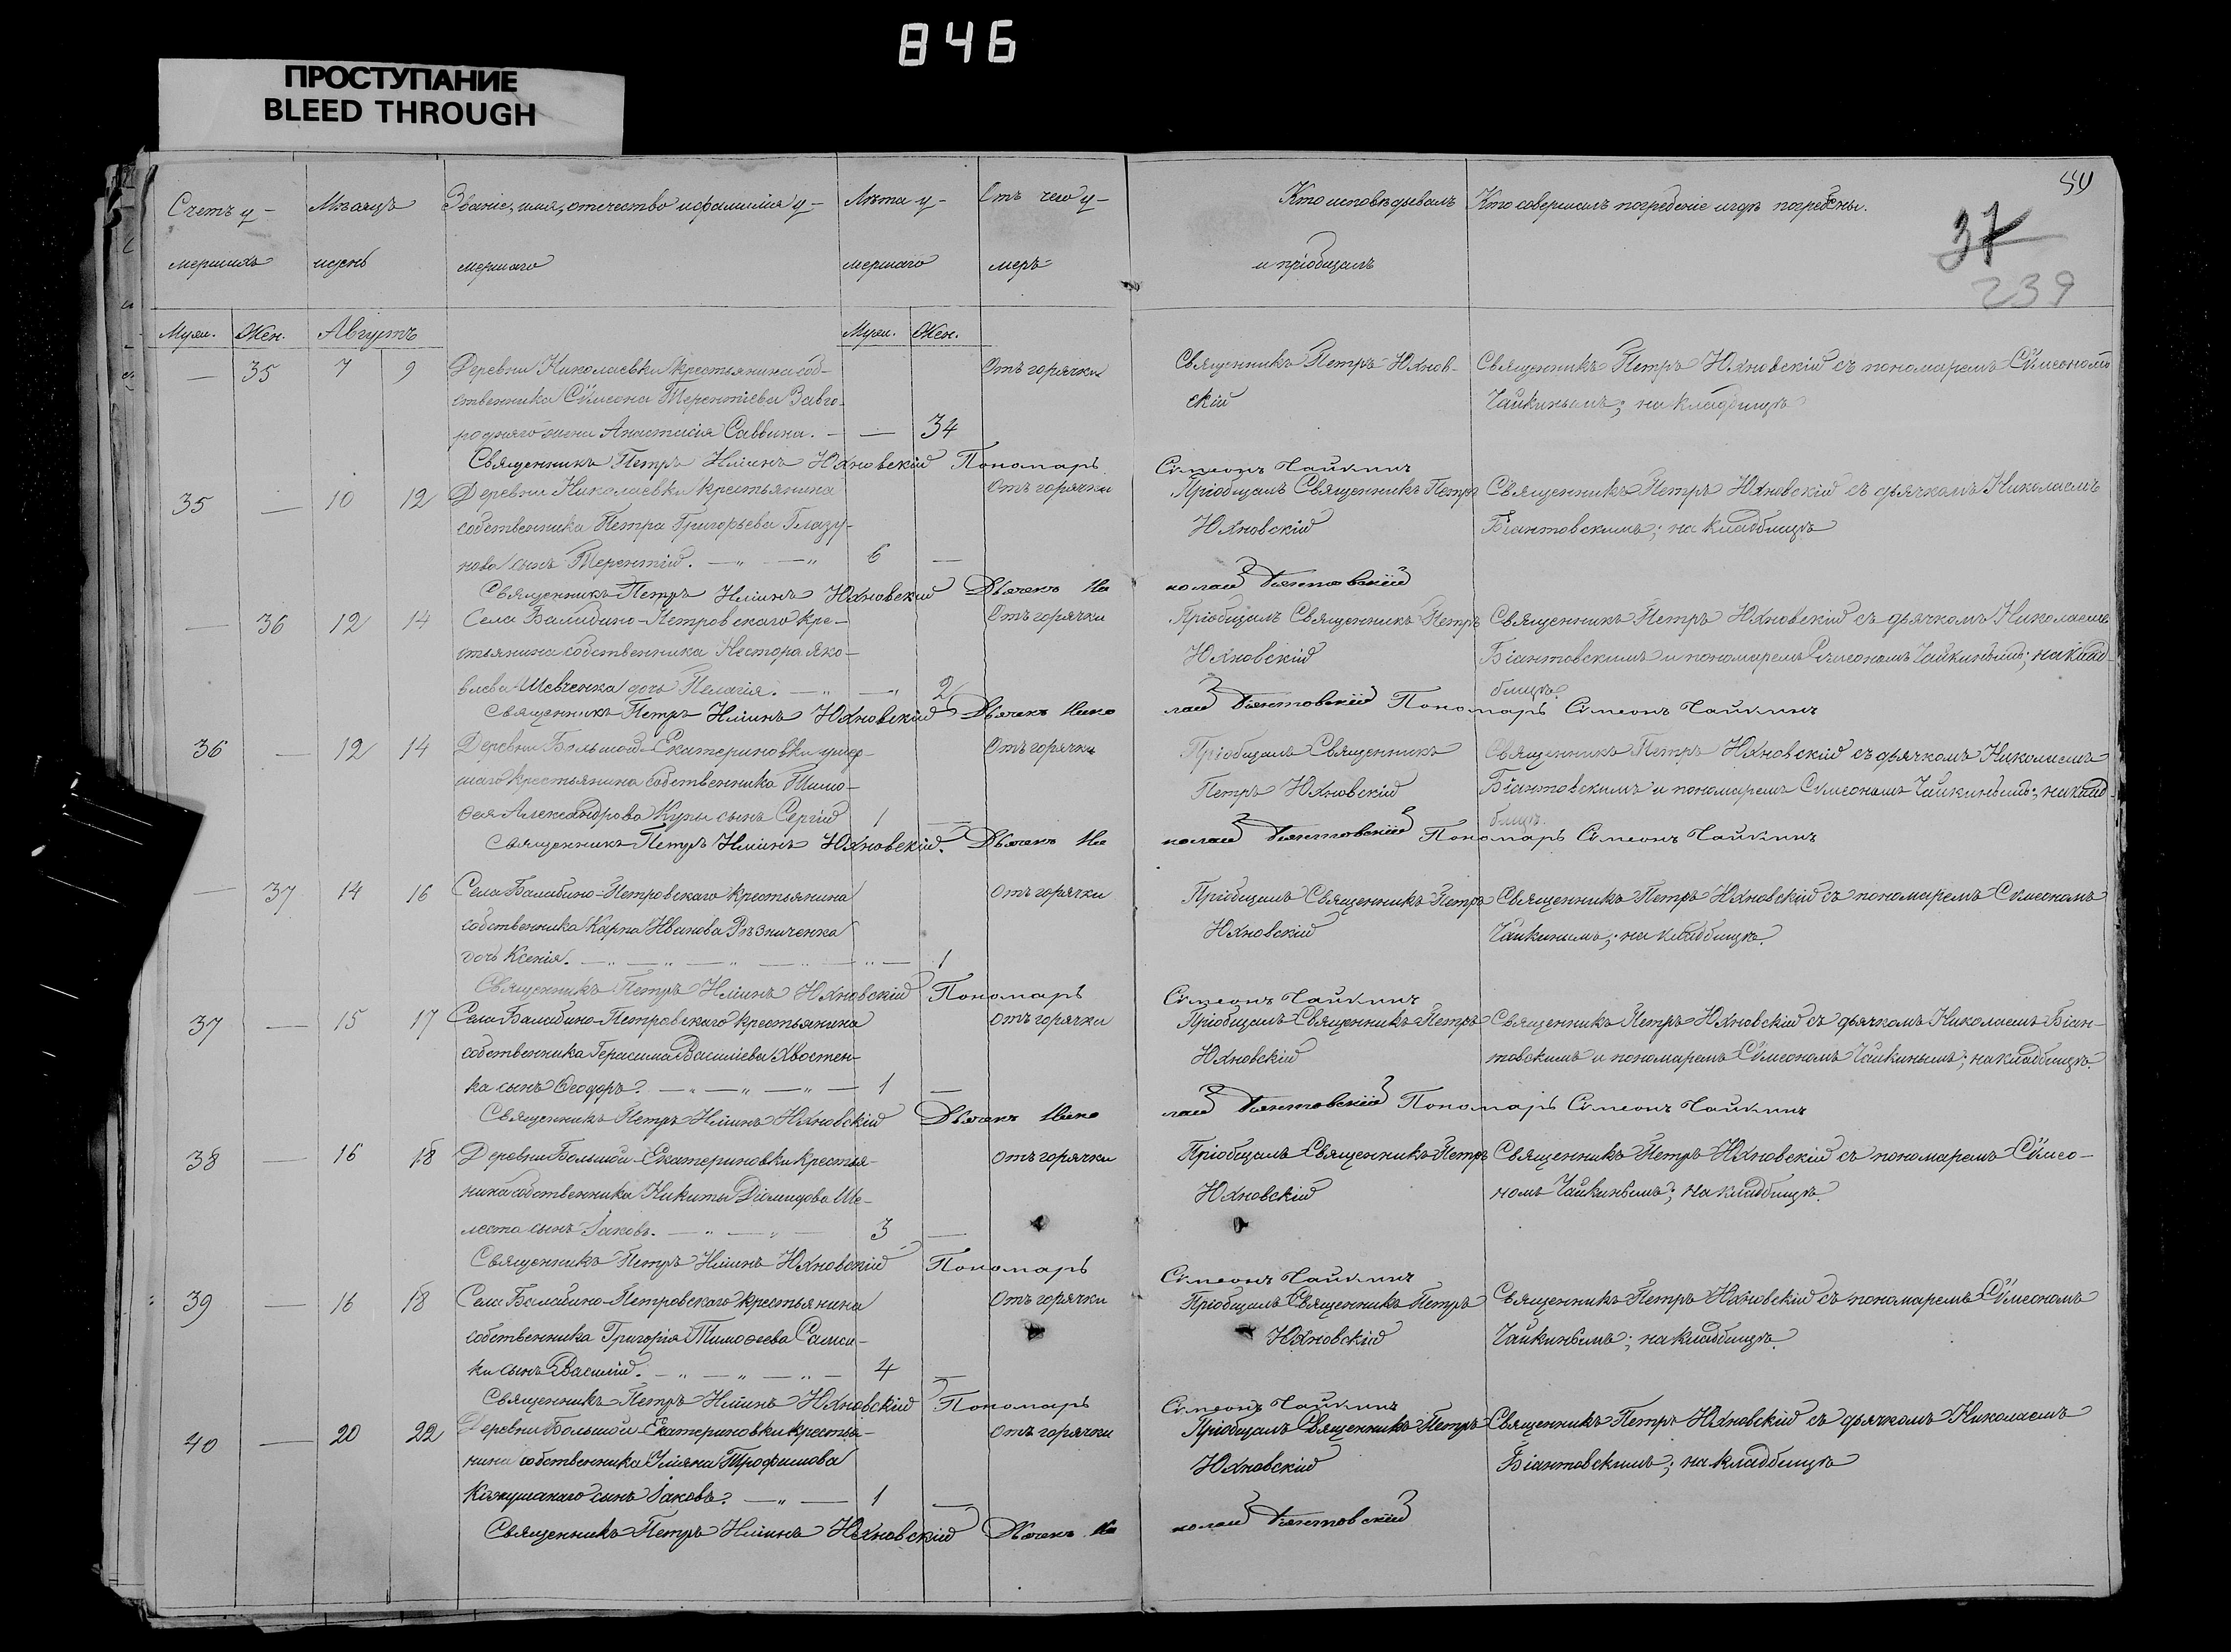 846
ПРОСТУПАНИЕ
BLEED THROUGH
50
37
239
Счетъ у-
мершихъ
Мѣсяцъ
и день
Званіе, имя, отчество и фамилія у-
мершаго
Лѣта у-
мершаго
Отъ чего у-
меръ
Кто исповѣдывалъ
и пріобщалъ
Кто совершалъ погребеніе и гдѣ погребены.
Муж. Жен. Августъ Муж. Жен.
— 35 7 9 Деревни Николаевки крестьянина соб- Отъ горячки Священникъ Петръ Юхнов- Священникъ Петръ Юхновскій съ пономаремъ Сѵмеономъ
ственника Сѵмеона Терентіева Завго- скій Чайкинымъ; на кладбищѣ
родняго жена Анастасія Саввина. — — 34
Священникъ Петръ Иліинъ Юхновскій Пономарь Сѵмеонъ Чайкинъ
35 — 10 12 Деревни Николаевки крестьянина Отъ горячки Пріобщалъ Священникъ Петръ Священникъ Петръ Юхновскій съ дьячкомъ Николаемъ
собственника Петра Григорьева Глазу- Юхновскій Біантовскимъ; на кладбищѣ
нова сынъ Терентій. — „ — „ 6 —
Священникъ Петръ Иліинъ Юхновскій Дьячекъ Николай Біантовскій
— 36 12 14 Села Балабино-Петровскаго кре- Отъ горячки Пріобщалъ Священникъ Петръ Священникъ Петръ Юхновскій съ дьячкомъ Николаемъ
стьянина собственника Нестора Яко- Юхновскій Біантовскимъ и пономаремъ Сѵмеономъ Чайкинымъ; на клад-
влева Шевченка дочь Пелагія. — „ — „ 2 бищѣ.
Священникъ Петръ Иліинъ Юхновскій Дьячекъ Николай Біантовскій Пономарь Сѵмеонъ Чайкинъ
36 — 12 14 Деревни Большой-Екатериновки умер- Отъ горячки Пріобщалъ Священникъ Священникъ Петръ Юхновскій съ дьячкомъ Николаемъ
шаго крестьянина собственника Тимо- Петръ Юхновскій Біантовскимъ и пономаремъ Сѵмеономъ Чайкинымъ; на клад-
ѳея Александрова Купы сынъ Сергій 1 — бищѣ.
Священникъ Петръ Иліинъ Юхновскій. Дьячекъ Николай Біантовскій Пономарь Сѵмеонъ Чайкинъ
— 37 14 16 Села Балабино-Петровскаго крестьянина Отъ горячки Пріобщалъ Священникъ Петръ Священникъ Петръ Юхновскій съ пономаремъ Сѵмеономъ
собственника Карпа Иванова Рѣзниченка Юхновскій Чайкинымъ; на кладбищѣ.
дочь Ксенія. — „ — „ — „ — „ — „ — 1
Священникъ Петръ Иліинъ Юхновскій Пономарь Сѵмеонъ Чайкинъ
37 — 15 17 Села Балабино-Петровскаго крестьянина Отъ горячки Пріобщалъ Священникъ Петръ Священникъ Петръ Юхновскій съ дьячкомъ Николаемъ Біан-
собственника Герасима Василіева Хвостен- Юхновскій товскимъ и пономаремъ Сѵмеономъ Чайкинымъ; на кладбищѣ.
ка сынъ Ѳеодоръ. — „ — „ — „ — 1 —
Священникъ Петръ Иліинъ Юхновскій Дьячекъ Николай Біантовскій Пономарь Сѵмеонъ Чайкинъ
38 — 16 18 Деревни Большой-Екатериновки крестья- Отъ горячки Пріобщалъ Священникъ Петръ Священникъ Петръ Юхновскій съ пономаремъ Сѵмео-
нина собственника Никиты Діомидова Ше- Юхновскій номъ Чайкинымъ; на кладбищѣ.
леста сынъ Іаковъ. — „ — „ — 3 —
Священникъ Петръ Иліинъ Юхновскій Пономарь Сѵмеонъ Чайкинъ
39 — 16 18 Села Балабино-Петровскаго крестьянина Отъ горячки Пріобщалъ Священникъ Петръ Священникъ Петръ Юхновскій съ пономаремъ Сѵмеономъ
собственника Григорія Тимоѳеева Юхновскій Чайкинымъ; на кладбищѣ.
сынъ Василій. — „ — „ — „ — 4 —
Священникъ Петръ Иліинъ Юхновскій Пономарь Сѵмеонъ Чайкинъ
40 — 20 22 Деревни Большой Екатериновки крестья- Отъ горячки Пріобщалъ Священникъ Петръ Священникъ Петръ Юхновскій съ дьячкомъ Николаемъ
нина собственника Трофимова Юхновскій Біантовскимъ; на кладбищѣ
сынъ Іаковъ. — „ — 1 —
Священникъ Петръ Иліинъ Юхновскій Дьячекъ Николай Біантовскій